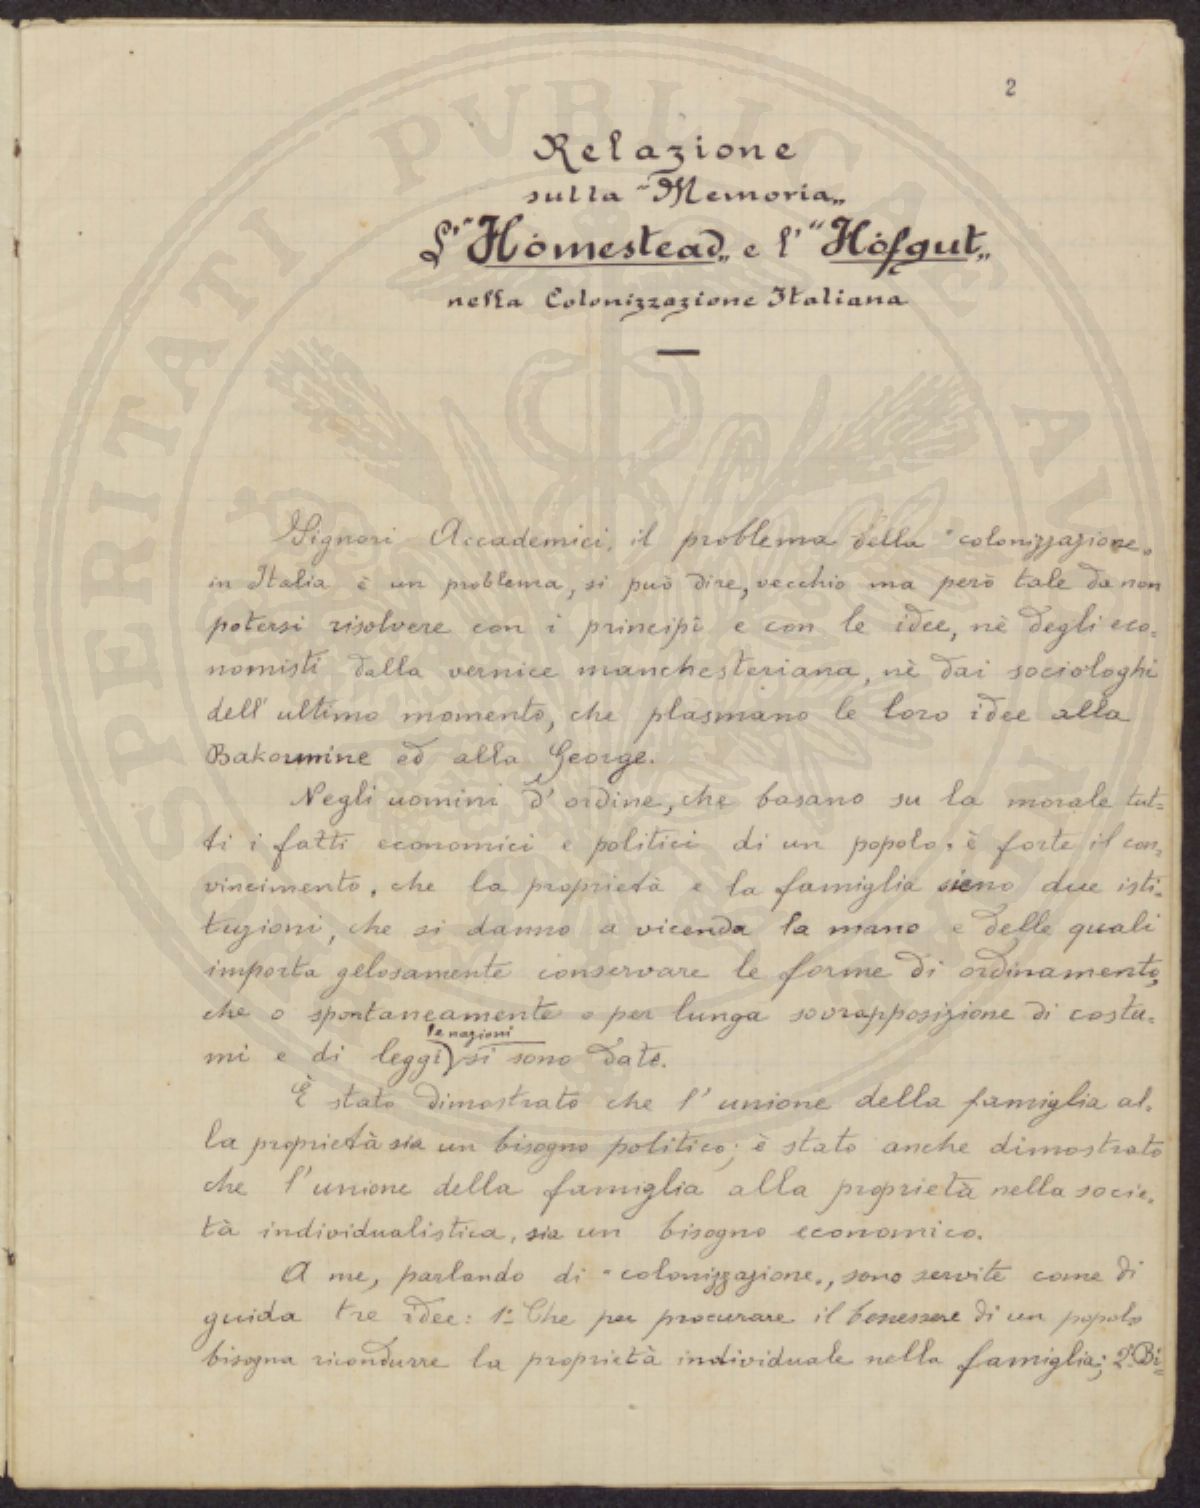 2
Relazione
sulla "Memoria„
L'"Hòmestead„ e l'"Hòfgut„
nella Colonizzazione Italiana
Signori Accademici, il problema della "colonizzazione„
in Italia è un problema, si può dire, vecchio ma però tale da non
potersi risolvere con i principî e con le idee, nè degli eco-
nomisti dalla vernice manchesteriana, nè dai sociologhi
dell'ultimo momento, che plasmano le loro idee alla
Bakounine ed alla George.
Negli uomini d'ordine, che basano su la morale tut-
ti i fatti economici e politici di un popolo, è forte il con-
vincimento, che la proprietà e la famiglia sieno due isti-
tuzioni, che si danno a vicenda la mano e delle quali
importa gelosamente conservare le forme di ordinamento,
che o spontaneamente o per lunga sovrapposizione di costu-
le nazioni
mi e di leggi) si sono date.
È stato dimostrato che l'unione della famiglia al-
la proprietà sia un bisogno politico; è stato anche dimostrato
che l'unione della famiglia alla proprietà nella socie-
tà individualistica, sia un bisogno economico.
A me, parlando di "colonizzazione„, sono servite come di
guida tre idee: 1º Che per procurare il benessere di un popolo
bisogna ricondurre la proprietà individuale nella famiglia; 2º Bi-
PUBLICAE
PERITATI